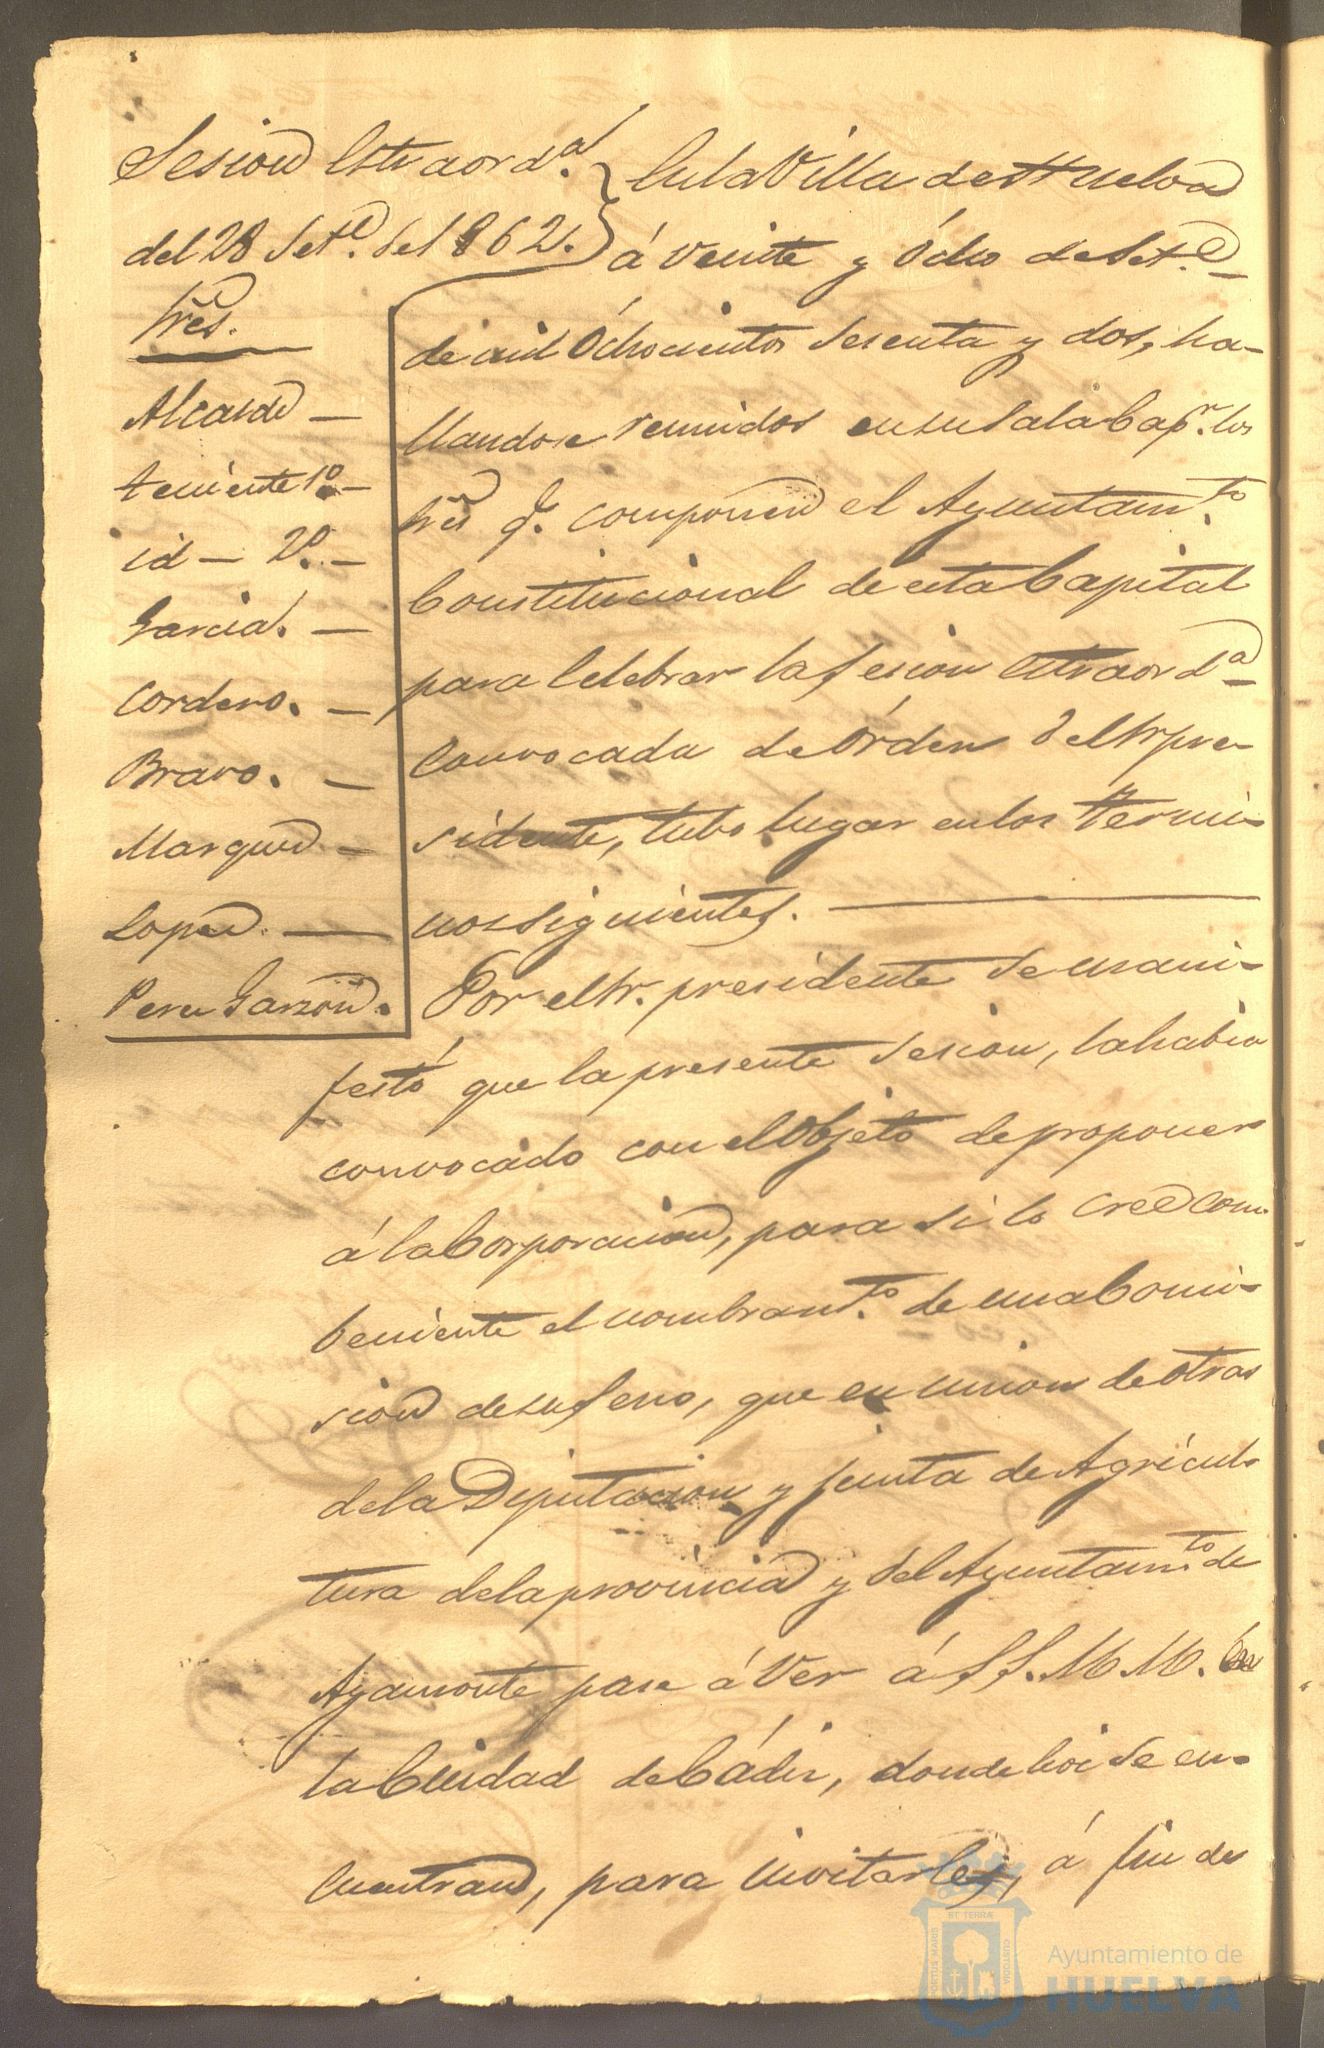 Sesion Estraord.ª
del 28 Set.e del 1862.
Sres.
Alcalde —
teniente 1.º —
id — 2.º —
Garcia. —
Cordero. —
Bravo. —
Marquez —
Lopez. —
Perez Garzon.
En la Villa de Huelva
á veinte y Ócho de Set.e
de mil Óchocientos Sesenta y dos, ha-
llandose reunidos en su Sala Cap.r los
Sres q.e componen el Ayuntam.to
Constitucional de esta Capital
para Celebrar la Sesion Estraord.ª
Convocada de Órden del Sr pre-
sidente, tubo lugar en los termi-
nos siguientes. —
Por el Sr. presidente Se mani-
festó que la presente Sesion, la habia
convocado con el Objeto de proponer
á la Corporacion, para si lo cree com-
beniente el nombram.to de una Comi-
sion de su Seno, que en union de otras
de la Diputacion y junta de Agricul-
tura de la provincia y del Ayuntam.to de
Ayamonte pase á Ver á SS. MM. en
la Ciudad de Cádiz, donde hoi Se en-
cuentran, para invitarles, á fin de
PORTUS MARIS
ET TERRÆ
CUSTODIA
Ayuntamiento de
HUELVA